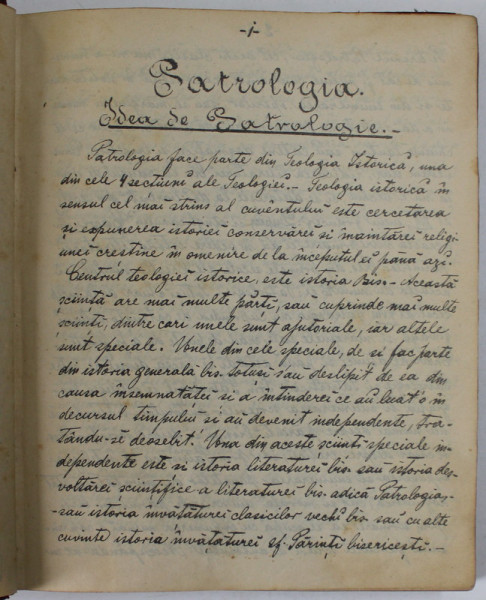 -1-
Patrologia.
Idea de Patrologie.-
Patrologia face parte din Teologia Istorică, una
din cele 4 secțiuni ale Teologiei.- Teologia istorică în
sensul cel mai strins al cuvêntului este cercetarea
și expunerea istoriei conservărei și înaintărei religi-
unei creștine în omenire de la începutul ei până azi.
Centrul teologiei istorice, este istoria Bis.- Această
știință are mai multe părți, sau cuprinde mai multe
științi, dintre cari unele sunt ajutoriale, iar altele
sunt speciale. Unele din cele speciale, de si fac parte
din istoria generală bis. totuși s'au deslipit de ea din
causa însemnatăței si a întinderei ce au luat'o în
decursul timpului si au devenit independente, tra-
tându-se deosebit. Una din aceste științi speciale in-
dependente este și istoria literaturei bis. sau istoria des-
voltărei științifice a literaturei bis. adică Patrologia,-
-sau istoria învățăturei clasicilor vechi bis. sau cu alte
cuvinte istoria învățăturei sf. Părinți bisericești.-